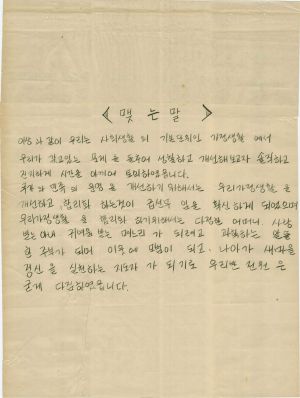 《 맺 는 말 》
이상과 같이 우리는 사회생활의 기본단위인 가정생활에서
우리가 갖고있는 문제를 들추어 성찰하고 개선해보고자 솔직하고
진지하게 시간을 아끼며 토의하였읍니다.
국가와 민족의 운명을 개선하기 위해서는 우리가정생활을
개선하고 합리화 하는것이 급선무임을 확신하게 되었으며
우리가정생활을 합리화 하기위해서는 다정한 어머니, 사랑
받는 아내, 귀여움받는 며느리가 되려고 과학하는
한 주부가 되며 이웃에 되고, 나아가 새마을
정신을 실천하는 지도자가 되기로 우리반 전원은
굳게 다짐하였읍니다.